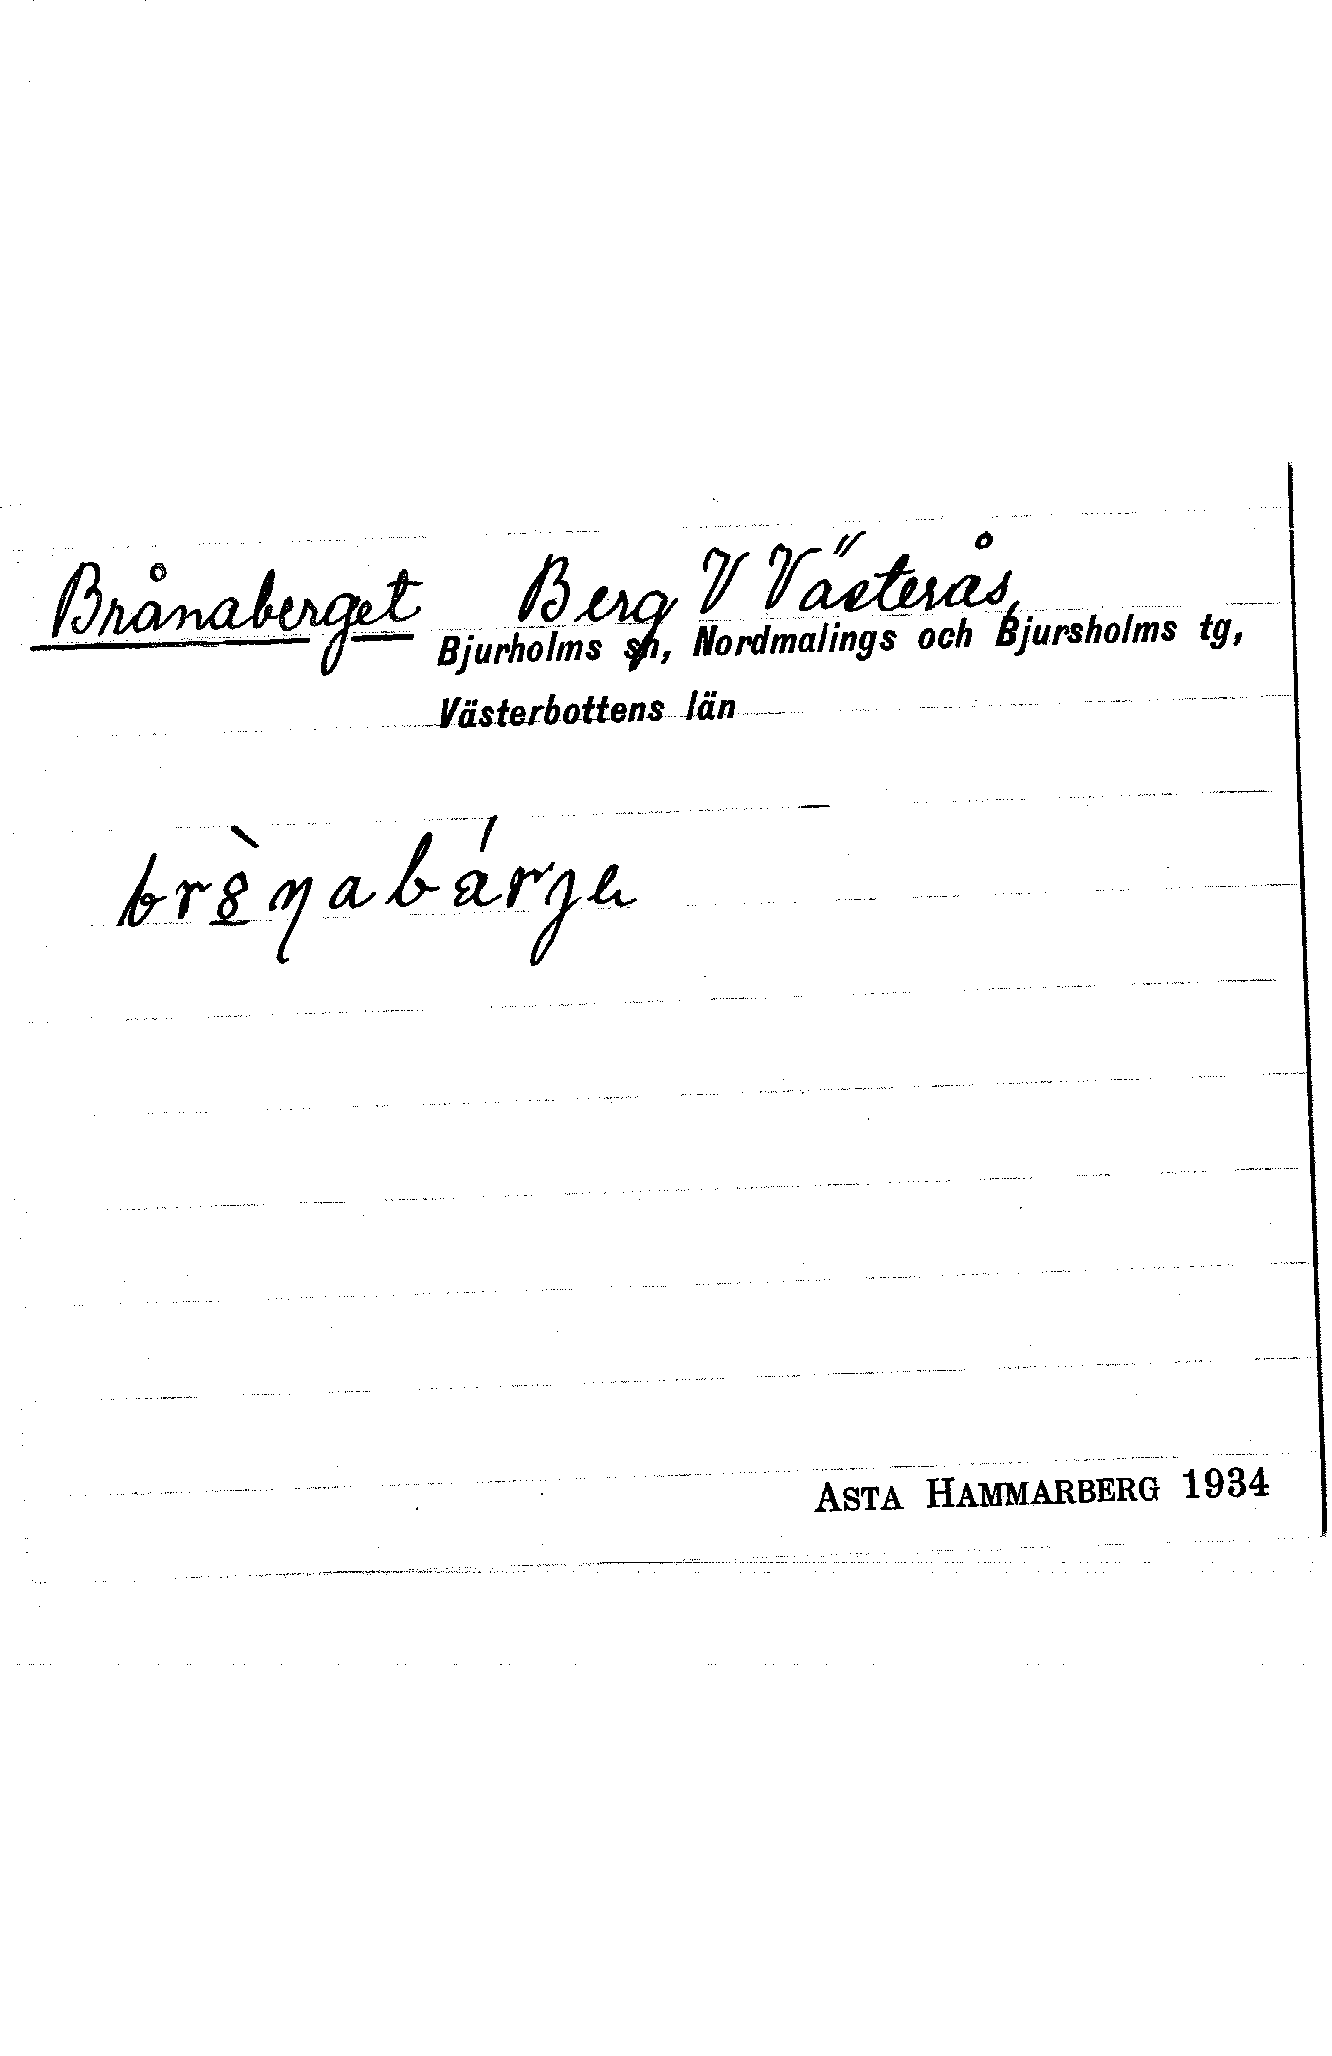 Brånaberget Berg V Västerås,
Bjurholms sn, Nordmalings och Bjursholms tg,
Västerbottens län
br8̲̀ŋabárje
ASTA HAMMARBERG 1934